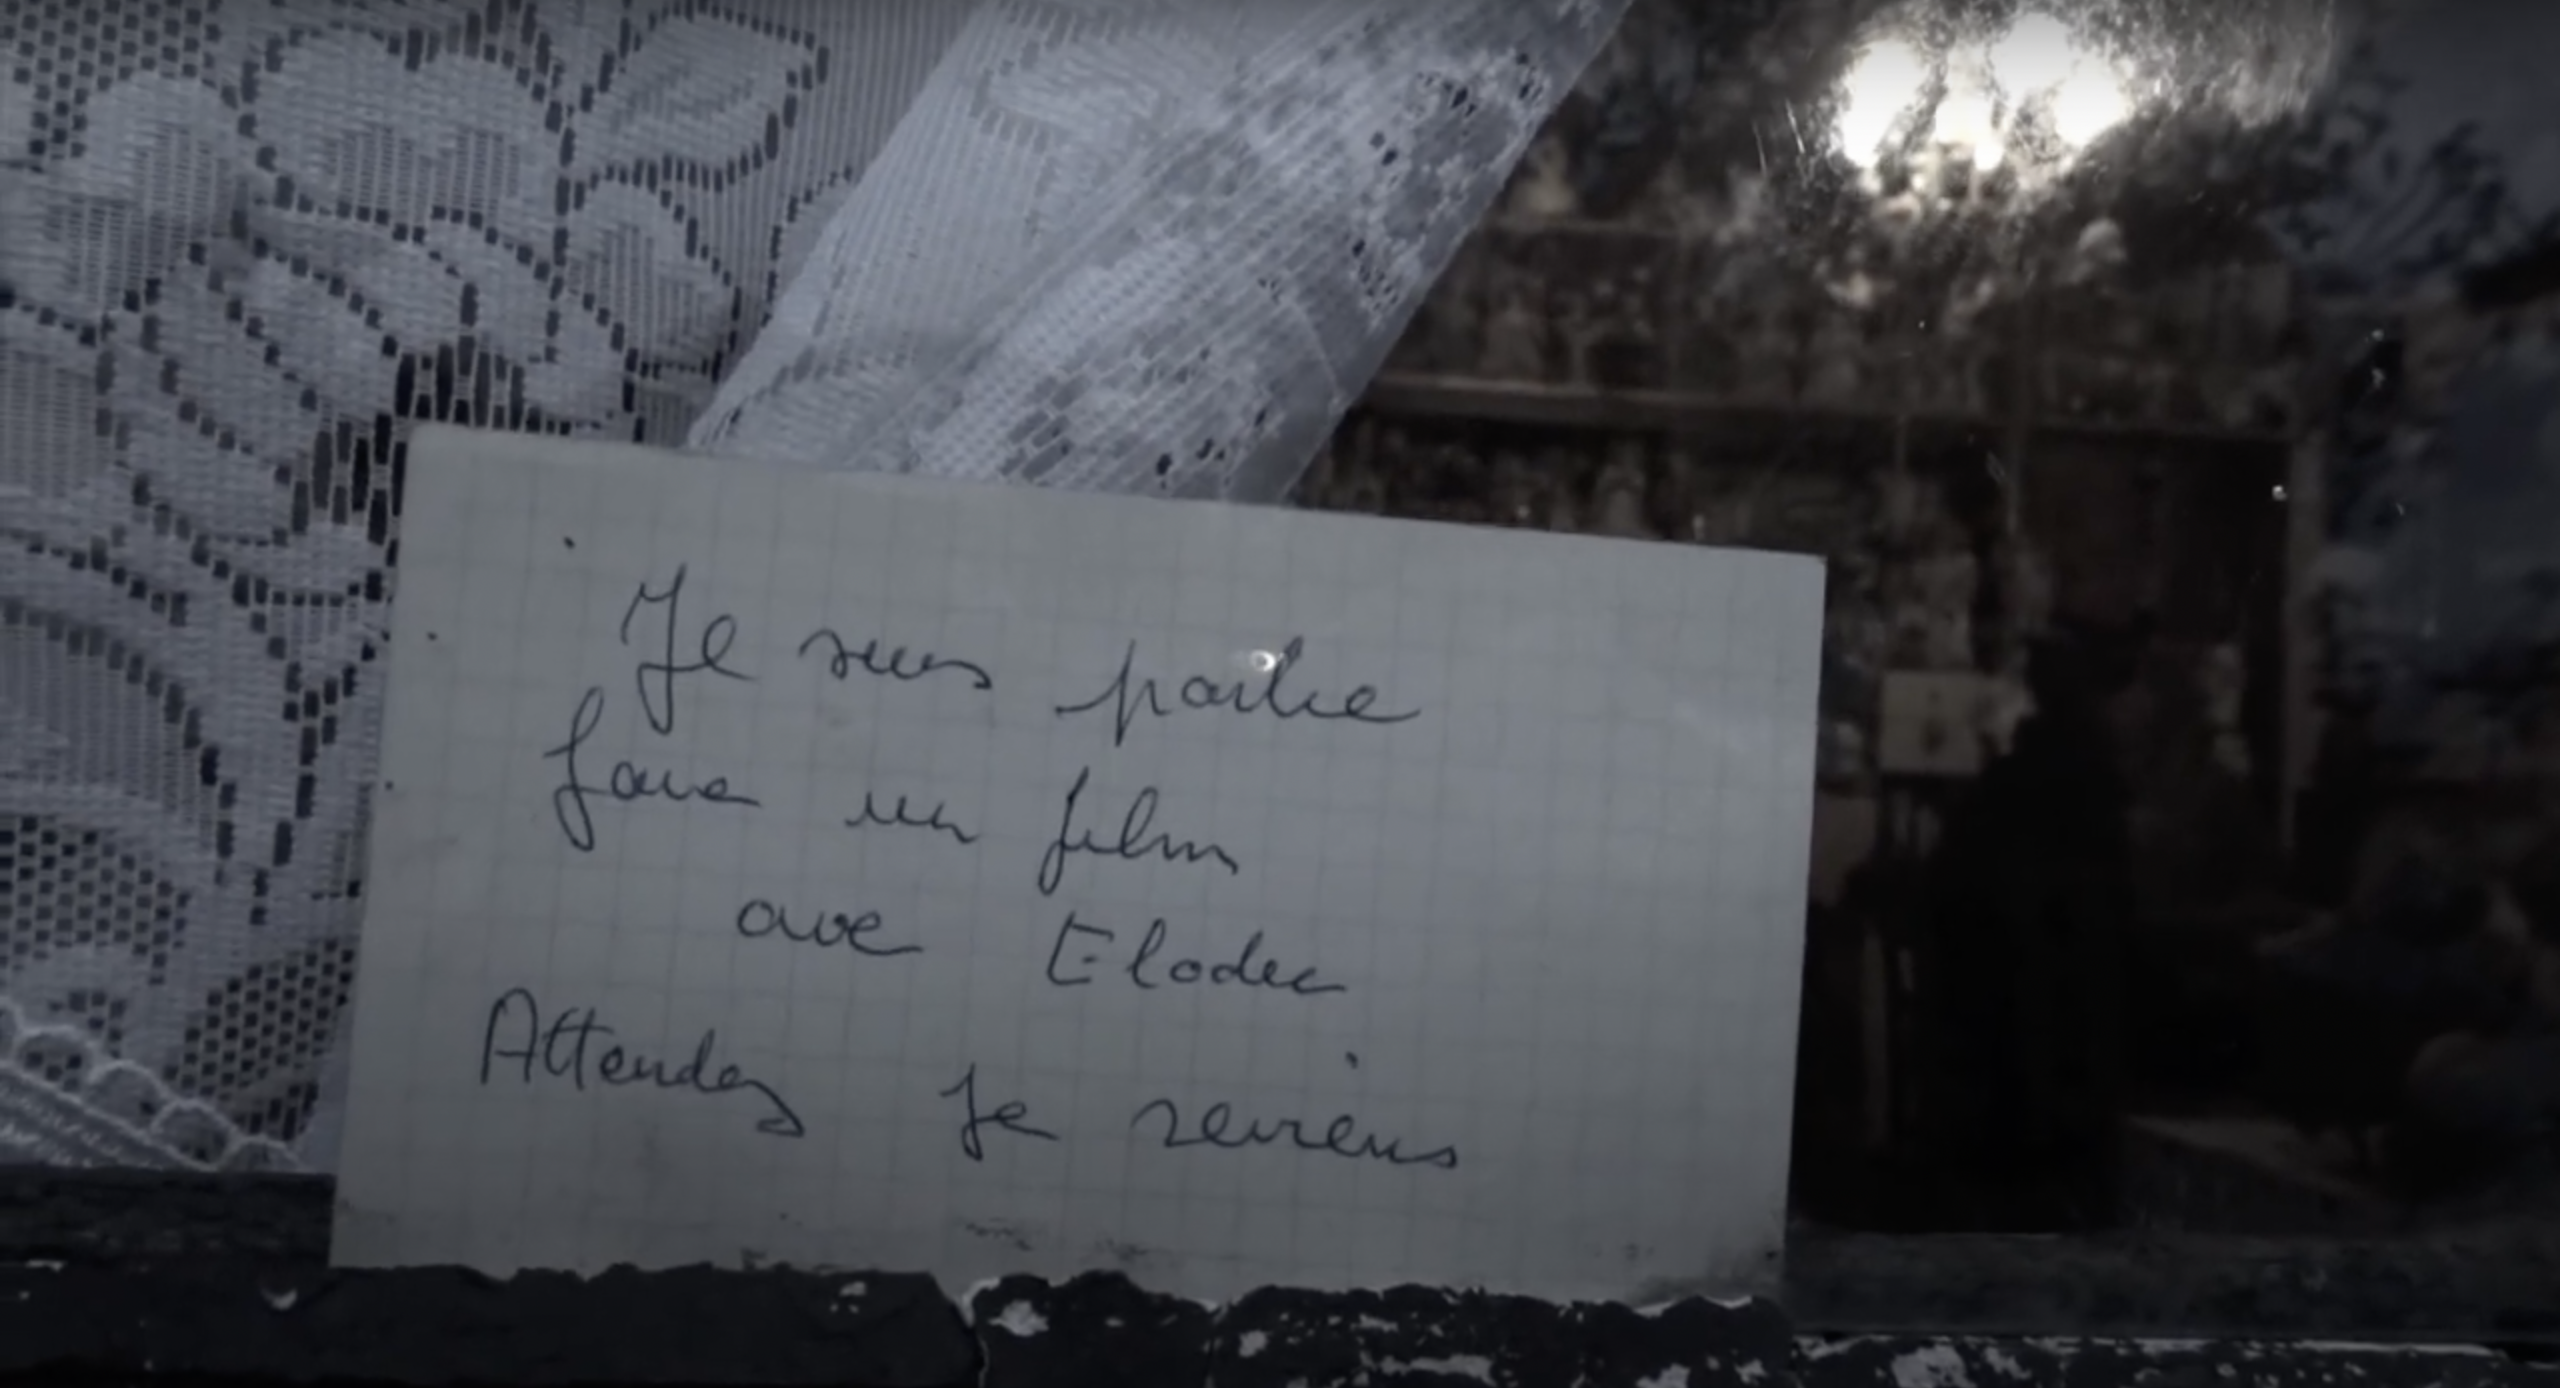 Je suis partie
faire un film
avec Elodie
Attendez je reviens